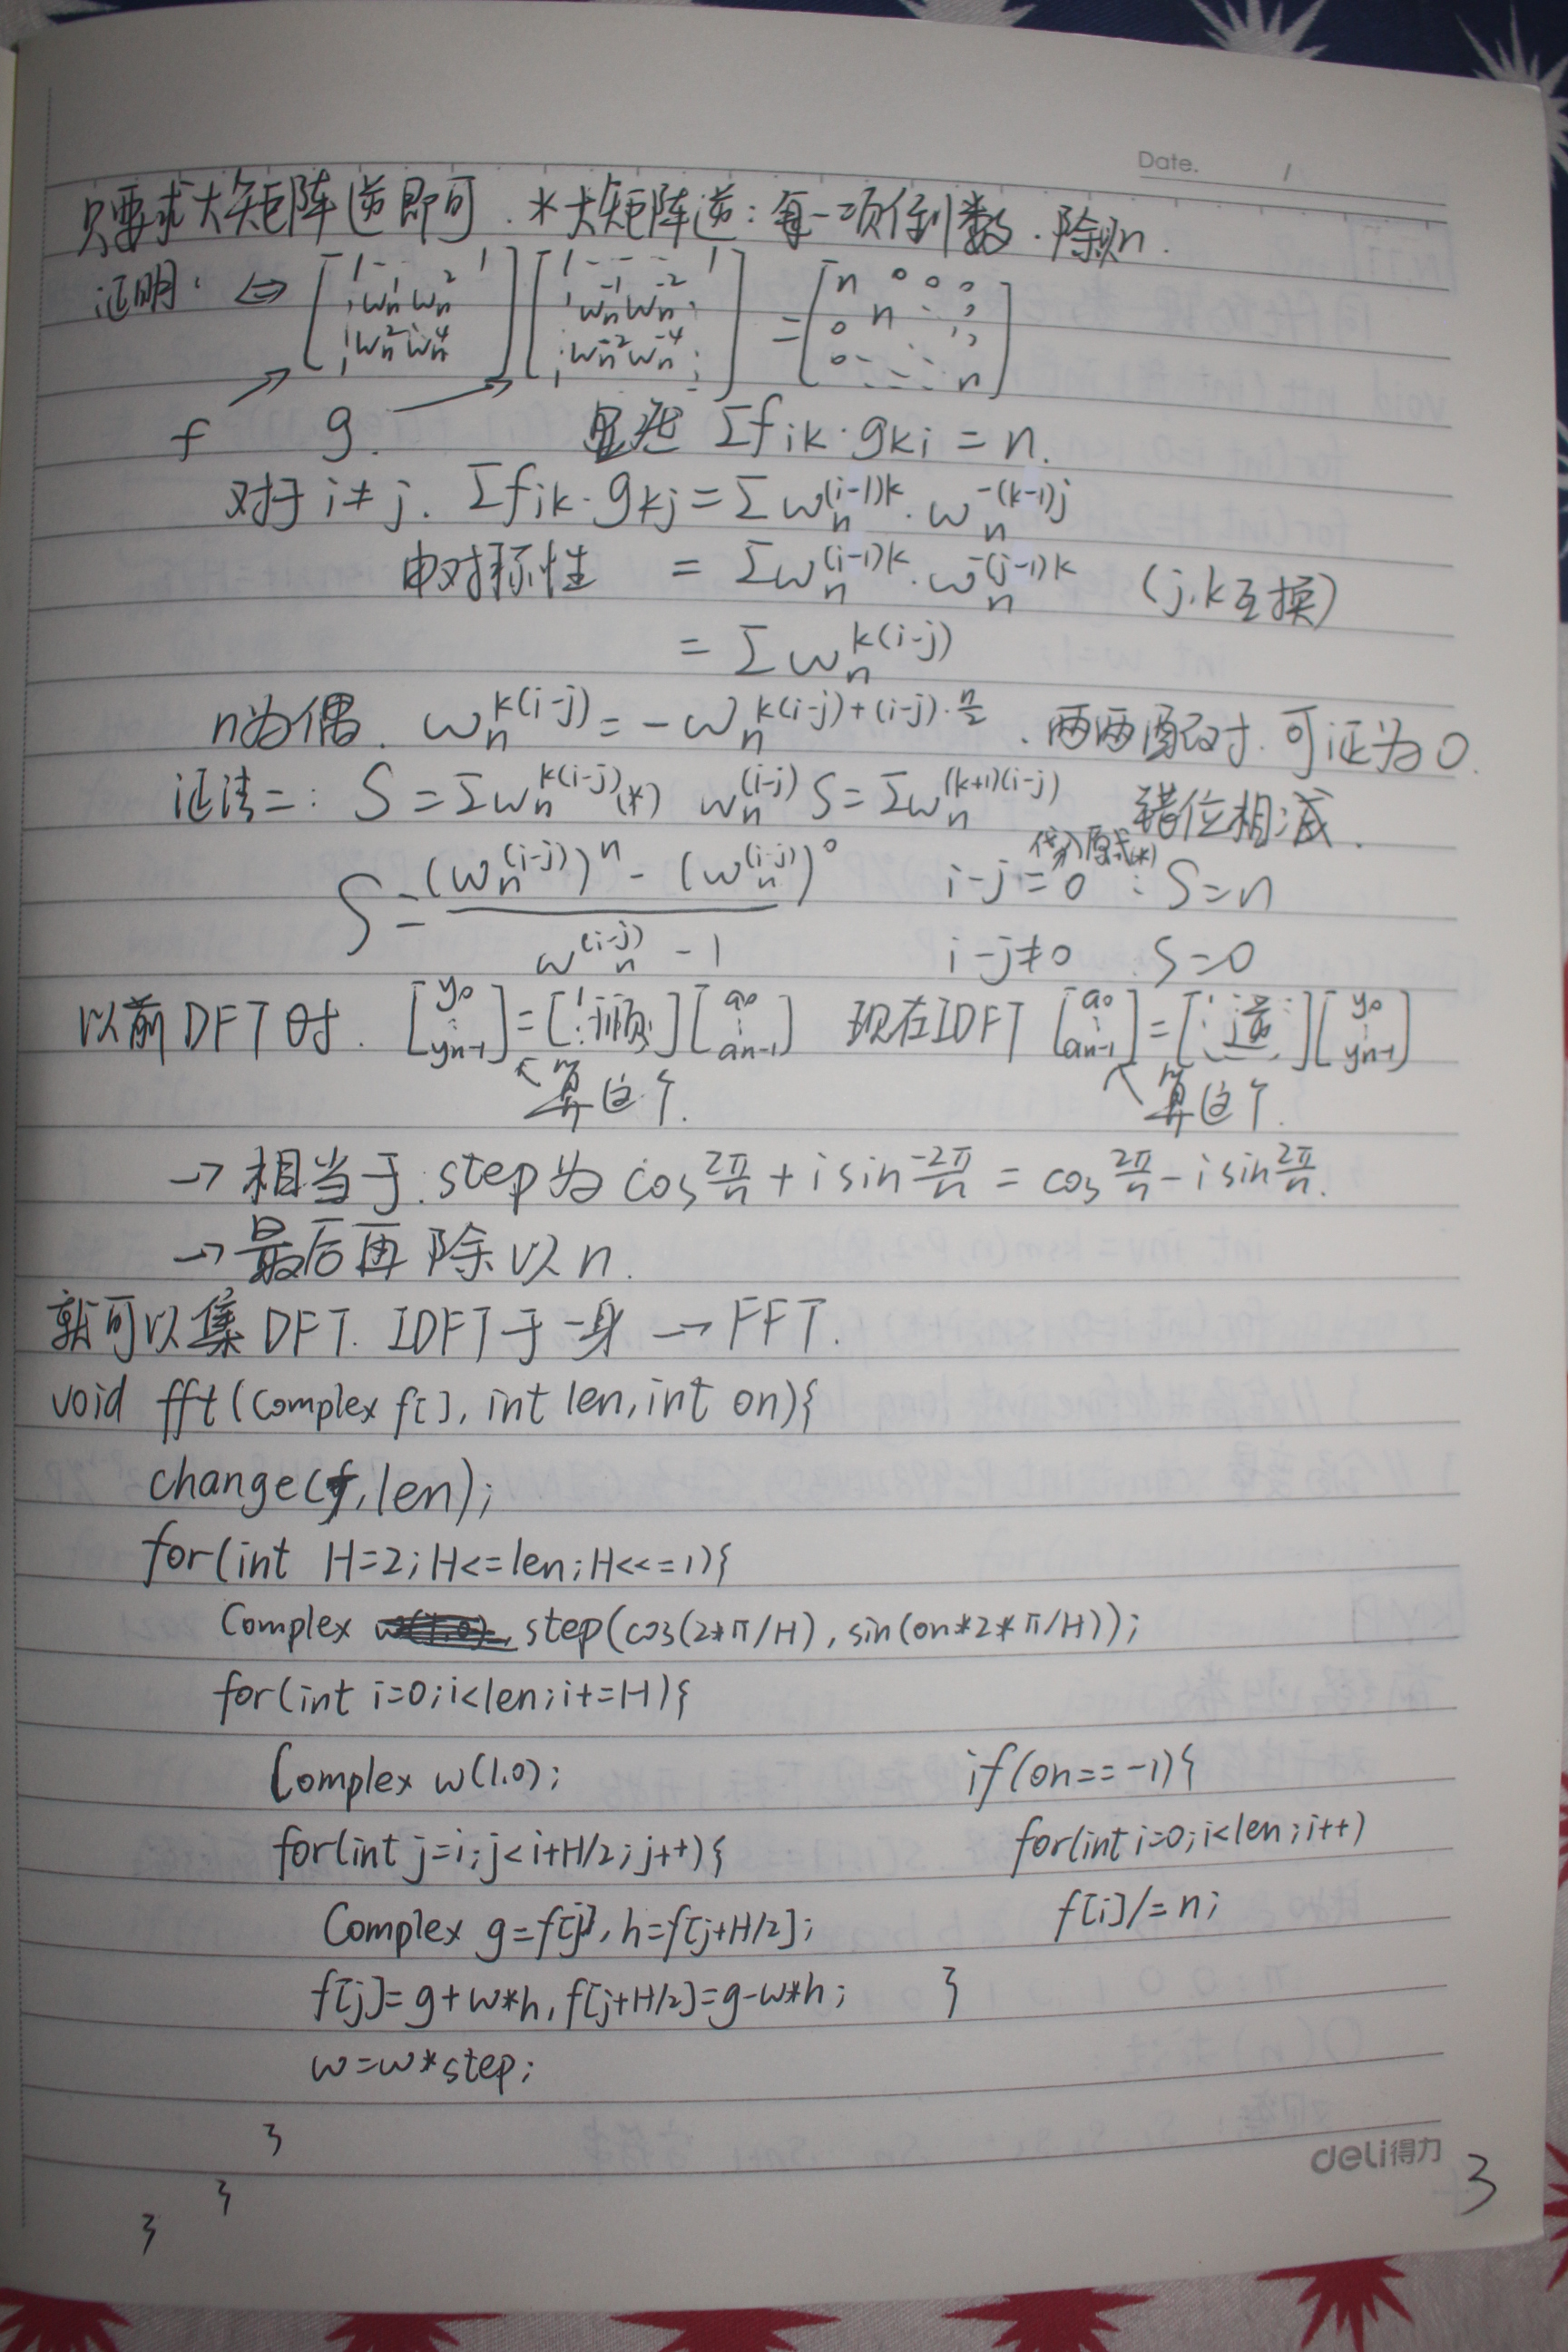 Date.
只要求大矩阵逆即可. *大矩阵逆:每一项倒数.除以n.
证明: ⇔ [1 - - 1; ω_n^1 ω_n^2; 1 ω_n^2 ω_n^4] [1 - - - 1; ω_n^-1 ω_n^-2; ω_n^-2 ω_n^-4] = [n 0 0 0; 0 n; 0 n]
f g. 显然 Σf_ik·g_ki = n.
对于 i≠j. Σf_ik·g_kj = Σω_n^(i-1)k · ω_n^-(k-1)j
由对称性 = Σω_n^(i-1)k · ω_n^-(j-1)k (j,k互换)
= Σω_n^k(i-j)
n为偶. ω_n^k(i-j) = -ω_n^k(i-j)+(i-j)·n/2 . 两两配对. 可证为0.
证法二: S = Σω_n^k(i-j) (*) ω_n^(i-j) S = Σω_n^(k+1)(i-j) 错位相减.
S = ((ω_n^(i-j))^n - (ω_n^(i-j))^0) / (ω_n^(i-j) - 1) i-j=0 代入原式(*) : S=n
i-j≠0 : S=0
以前DFT时. [y0 ⋮ yn-1] = [顺] [a0 ⋮ an-1] 现在IDFT [a0 ⋮ an-1] = [逆] [y0 ⋮ yn-1]
↖算这个. ↖算这个.
→相当于.step为 cos 2π/n + i sin -2π/n = cos 2π/n - i sin 2π/n.
→最后再除以n.
就可以集DFT.IDFT于一身 → FFT.
void fft(Complex f[], int len, int on){
change(f, len);
for(int H=2; H<=len; H<<=1){
Complex step(cos(2*π/H), sin(on*2*π/H));
for(int i=0; i<len; i+=H){
Complex w(1,0);
for(int j=i; j<i+H/2; j++){
Complex g=f[j], h=f[j+H/2];
f[j]=g+w*h, f[j+H/2]=g-w*h;
w=w*step;
}
}
}
if(on==-1){
for(int i=0; i<len; i++)
f[i]/=n;
}
deli得力
3